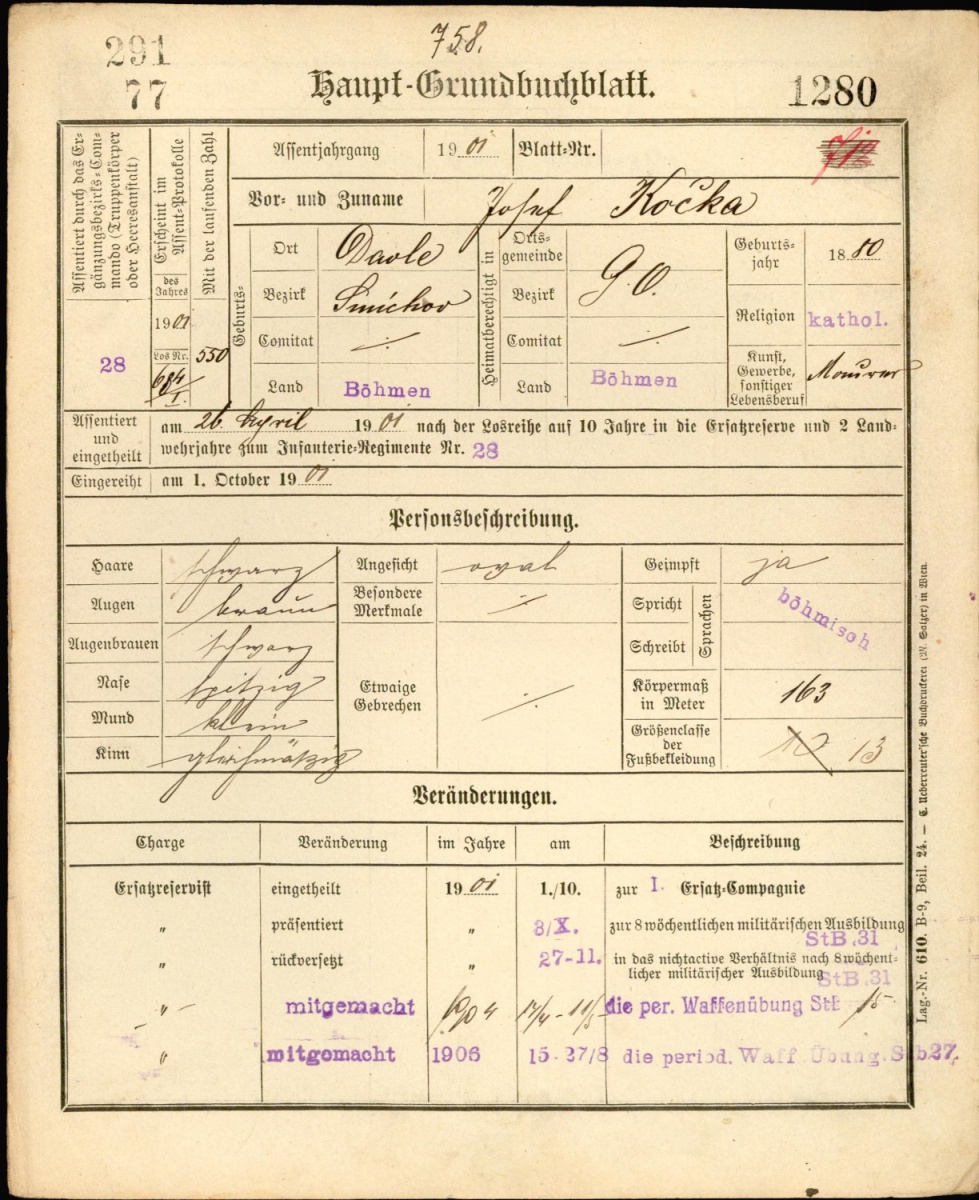 291
77
758.
Haupt-Grundbuchblatt.
1280
Assentiert durch das Er-
gänzungsbezirks-Com-
mando (Truppenkörper
oder Heeresanstalt)
28
Erscheint im
Assent-Protokolle
des
Jahres
1901
Los Nr.
684/I.
Mit der laufenden Zahl
550
Assentjahrgang 1901 Blatt-Nr.
Vor- und Zuname Josef Kočka
Geburts-
Ort Davle
Bezirk Smíchov
Comitat ·/·
Land Böhmen
Heimatberechtigt in
Orts-
gemeinde
Bezirk
G. O.
Comitat ·/·
Land Böhmen
Geburts-
jahr 1880
Religion kathol.
Kunst,
Gewerbe,
sonstiger
Lebensberuf
Maurer
Assentiert
und
eingetheilt
am 26. April 1901 nach der Losreihe auf 10 Jahre in die Ersatzreserve und 2 Land-
wehrjahre zum Infanterie-Regimente Nr. 28
Eingereiht am 1. October 1901
Personsbeschreibung.
Haare schwarz
Augen braun
Augenbrauen schwarz
Nase spitzig
Mund klein
Kinn gleichmäßig
Angesicht oval
Besondere
Merkmale ·/·
Etwaige
Gebrechen ·/·
Geimpft ja
Spricht
Schreibt
Sprachen
böhmisch
Körpermaß
in Meter 163
Größenclasse
der
Fußbekleidung
13
Veränderungen.
Charge Veränderung im Jahre am Beschreibung
Ersatzreservist eingetheilt 1901 1./10. zur I. Ersatz-Compagnie
" präsentiert " 8/X. zur 8 wöchentlichen militärischen Ausbildung
StB.31
" rückversetzt " 27-11. in das nichtactive Verhältnis nach 8 wöchent-
licher militärischer Ausbildung StB.31
" mitgemacht 1904 17/4 - 11/5 die per. Waffenübung StB 15
" mitgemacht 1906 15-27/8 die period. Waff. Übung. Stb27.
Lag.-Nr. 610. B-9, Beil. 24. — C. Ueberreuter'sche Buchdruckerei (M. Salzer) in Wien.